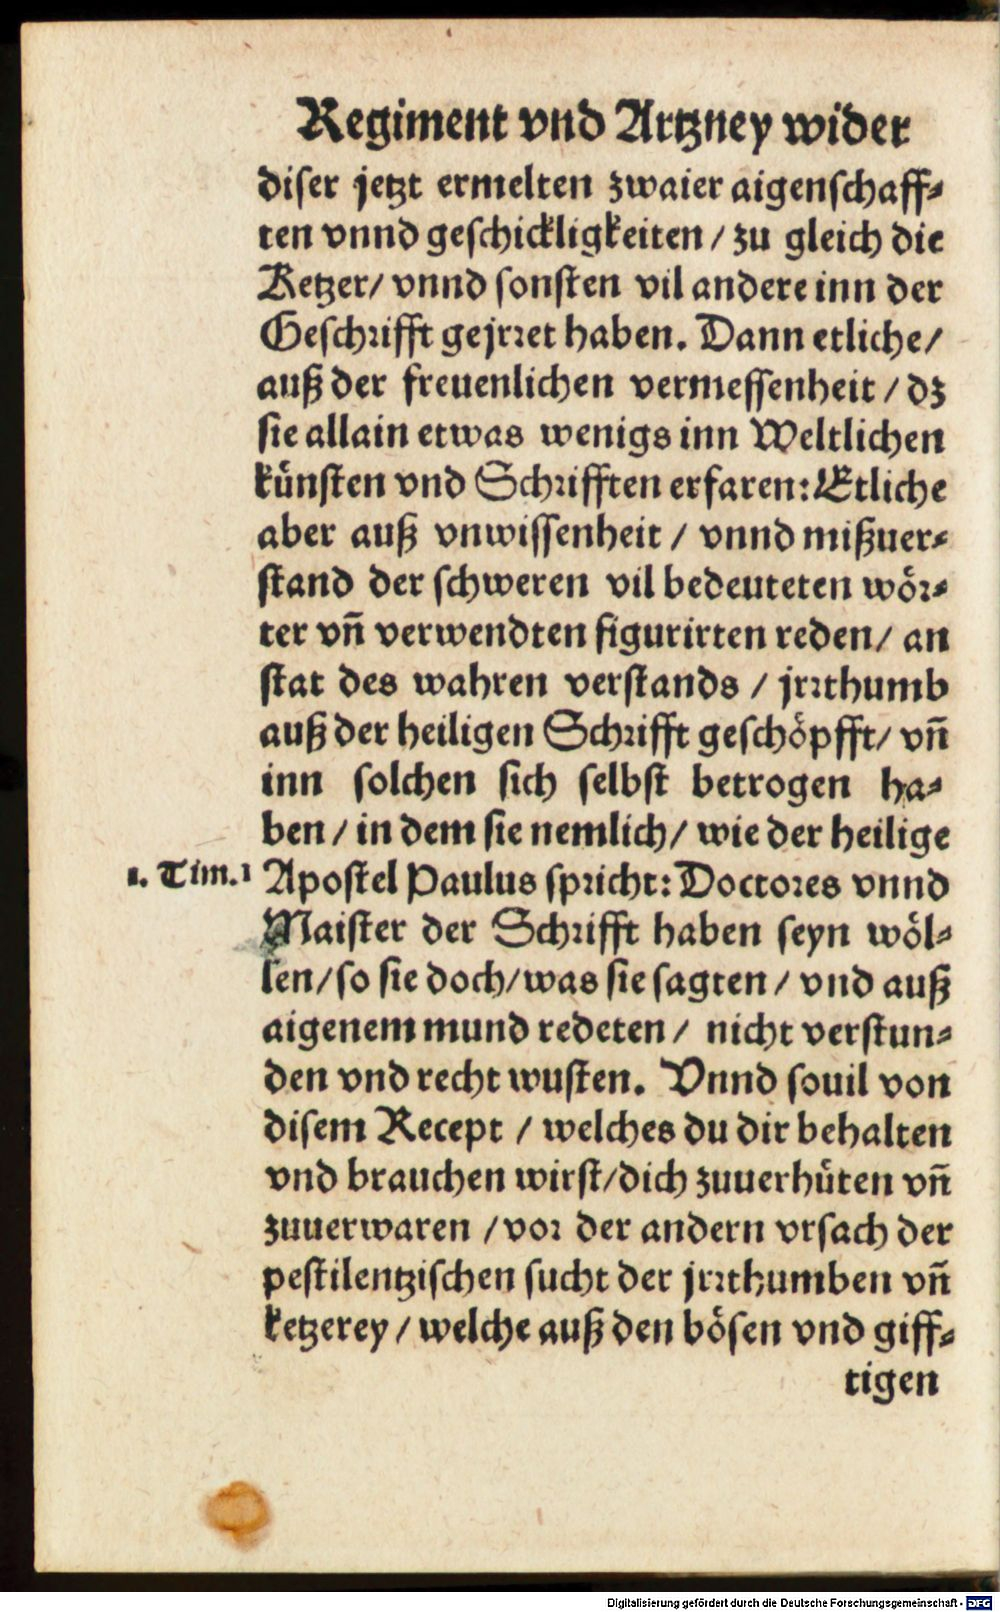 Regiment vnd Artzney wider
diser jetzt ermelten zwaier aigenschaff-
ten vnnd geschickligkeiten / zu gleich die
Ketzer/ vnnd sonsten vil andere inn der
Geschrifft gejrret haben. Dann etliche/
auß der freuenlichen vermessenheit / dz
sie allain etwas wenigs inn Weltlichen
künsten vnd Schrifften erfaren: Etliche
aber auß vnwissenheit / vnnd mißuer-
stand der schweren vil bedeuteten wör-
ter vñ verwendten figurirten reden/ an
stat des wahren verstands / jrrthumb
auß der heiligen Schrifft geschöpfft/ vñ
inn solchen sich selbst betrogen ha-
ben / in dem sie nemlich/ wie der heilige
1. Tim. 1 Apostel Paulus spricht: Doctores vnnd
Maister der Schrifft haben seyn wöl-
len/so sie doch/was sie sagten / vnd auß
aigenem mund redeten / nicht verstun-
den vnd recht wusten. Vnnd souil von
disem Recept / welches du dir behalten
vnd brauchen wirst/dich zuuerhüten vñ
zuuerwaren /vor der andern vrsach der
pestilentzischen sucht der jrrthumben vñ
ketzerey / welche auß den bösen vnd giff-
tigen
Digitalisierung gefördert durch die Deutsche Forschungsgemeinschaft - DFG